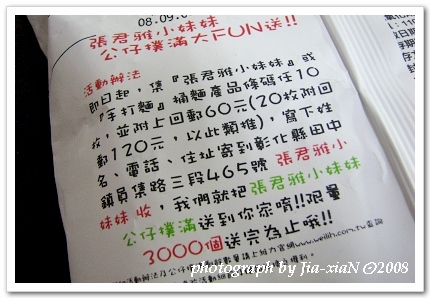 08.09.0
張君雅小妹妹
公仔撲滿大FUN送!!
活動辦法
即日起，集『張君雅小妹妹』或
『手打麵』桶麵產品條碼任10
枚，並附上回郵60元(20枚附回
郵120元，以此類推)，寫下姓
名、電話、住址寄到彰化縣田中
鎮員集路三段465號 張君雅小
妹妹 收，我們就把張君雅小妹妹
公仔撲滿送到你家唷!!限量
3000個送完為止哦!!
photograph by Jia-xiaN ©2008